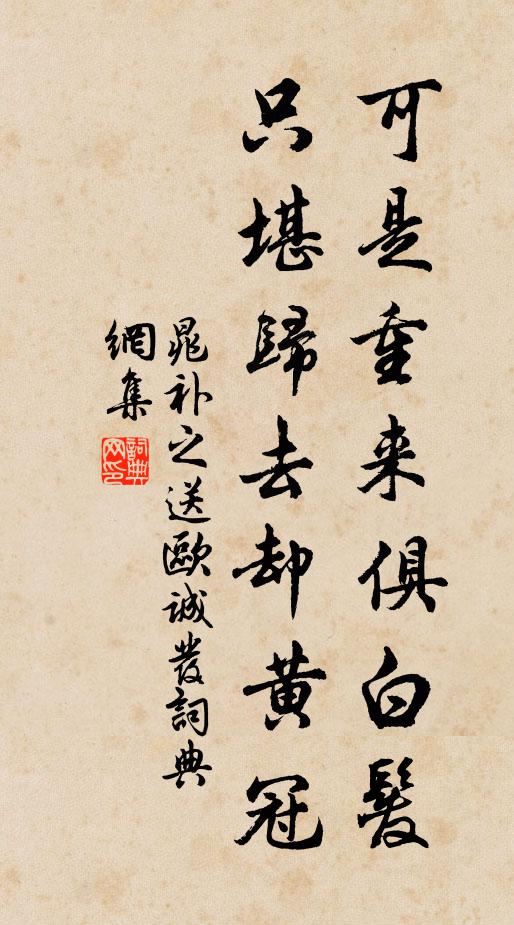 可是重来俱白髮
只堪歸去却黄冠
晁补之送歐诚發詞典
網集
詞典
网印